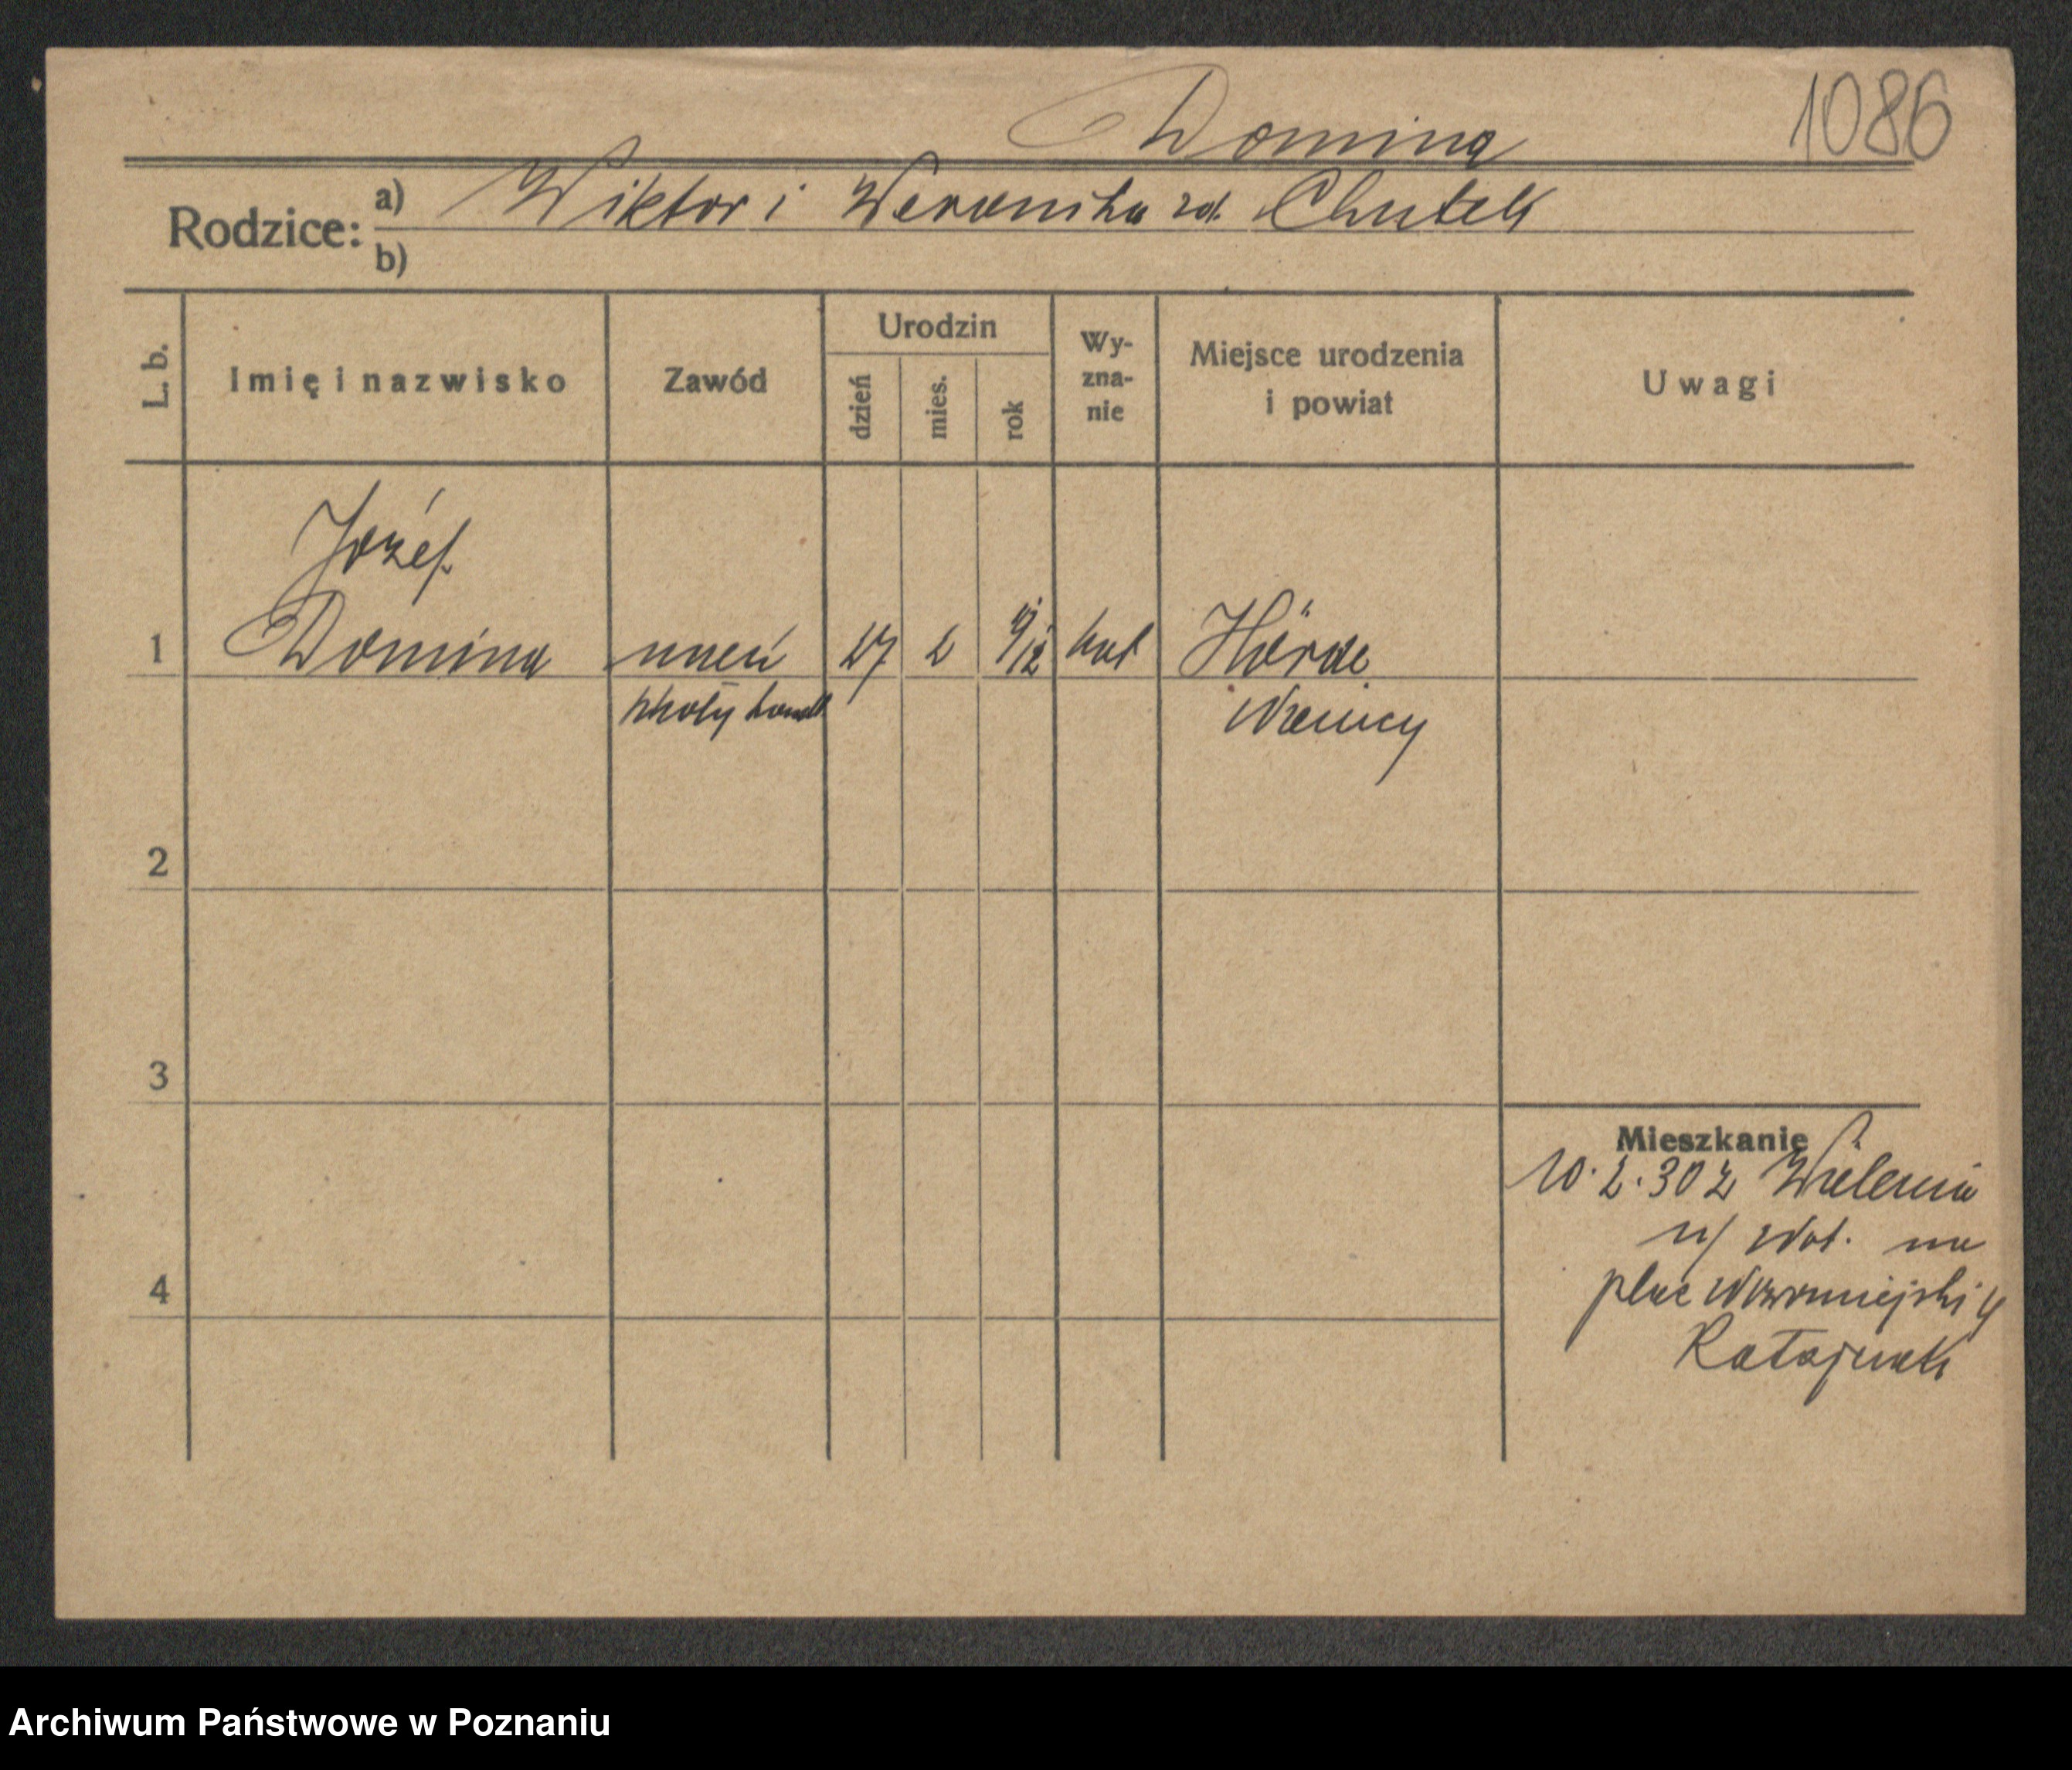 Domina 1086
Rodzice: a) Wiktor i Weronika zd. Chutek
b)
L. b. Imię i nazwisko Zawód Urodzin dzień mies. rok Wy-zna-nie Miejsce urodzenia i powiat Uwagi
Józef
1 Domina uczeń 27 2 12 kat Hörde
szkoły handl Niemcy
2
3
Mieszkanie
10.2.30 z Wielenia
n/ Not. na
4 plac Nowomiejski 4
Ratajczak
Archiwum Państwowe w Poznaniu